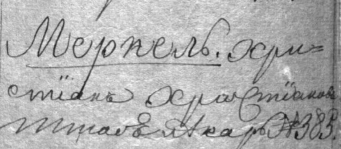 Меркель. Хри-
стіанъ Христіановъ
Штабъ лѣкарь № 385.